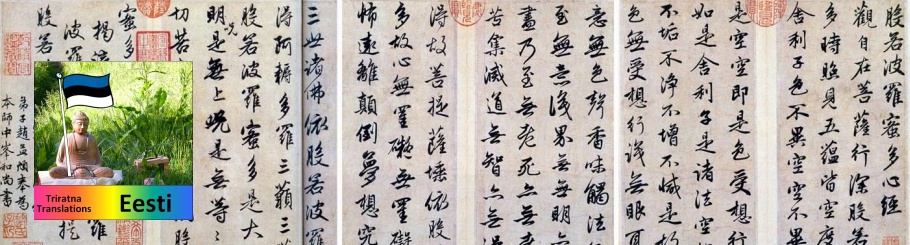 般若波羅蜜多心經
觀自在菩薩行深般若
多時照見五蘊皆空度
舍利子色不異空空不
是空即是色受想行
如是舍利子是諸法空
不垢不淨不增不減是
色無受想行識無眼
意無色聲香味觸法
至無意識界無無明
盡乃至無老死亦無
苦集滅道無智亦無
得故菩提薩埵依般
多故心無罣礙無罣礙
怖遠離顛倒夢想究
三世諸佛依般若波羅
得阿耨多羅三藐三
般若波羅蜜多是大
明呪是無上呪是無等
切苦
蜜多
揭
波羅
般若
弟子趙孟頫奉為
本師中峯和尚書
Triratna
Translations
Eesti